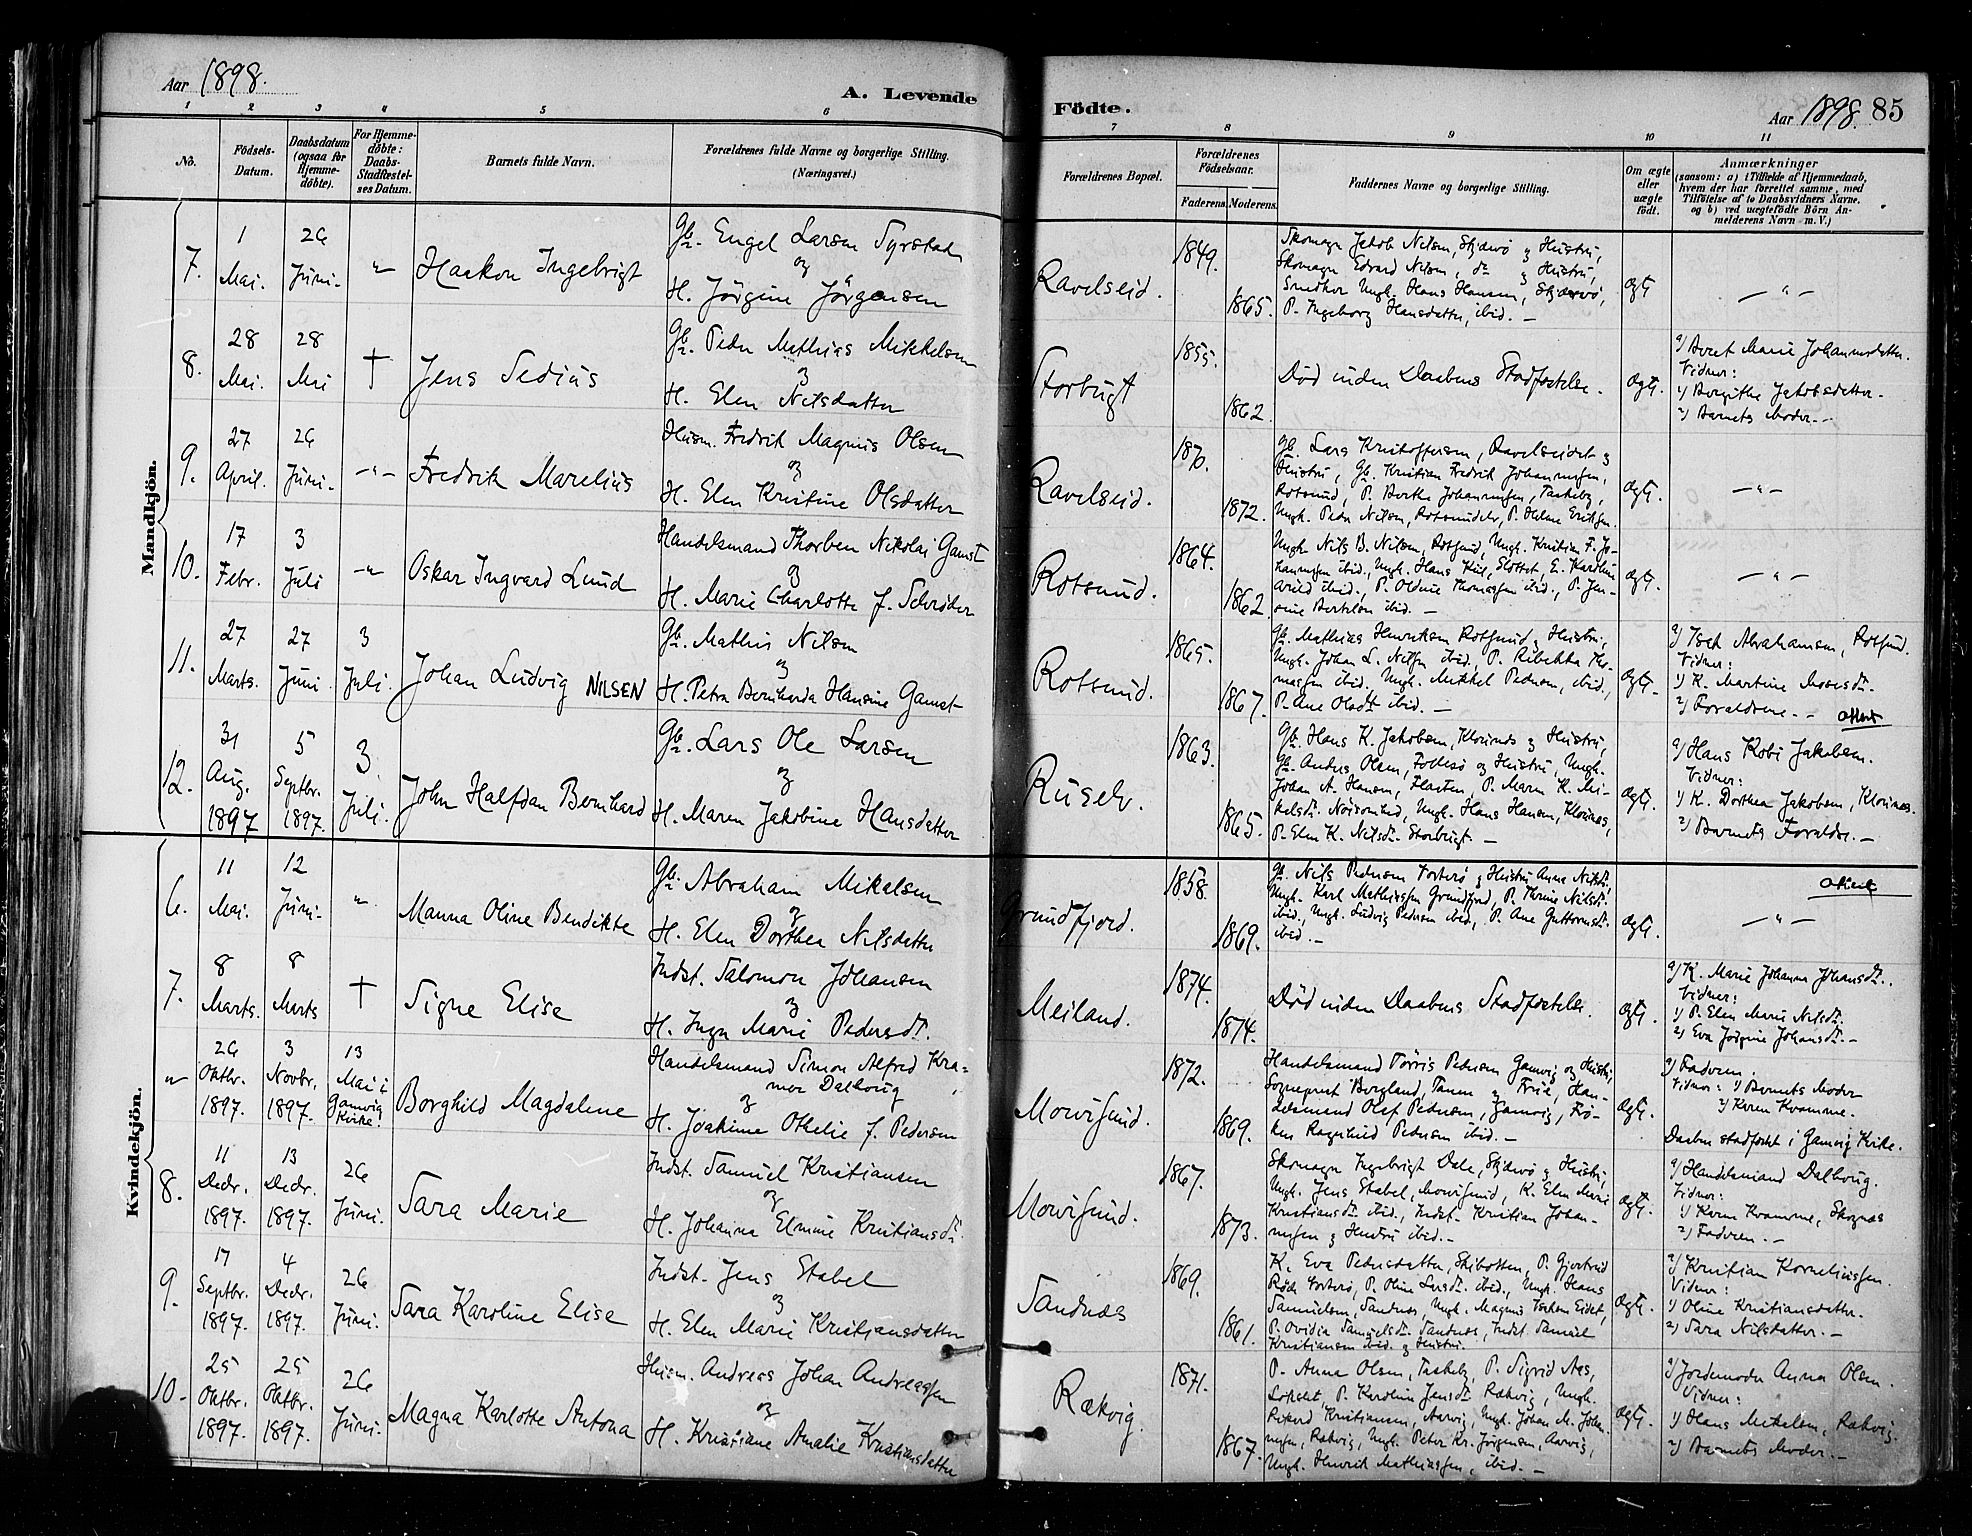 Aar 1898.
A. Levende
Födte.
Aar 1898. 85
1 2 3 4 5 6 7 8 9 10 11
No.
Födsels-
Datum.
Daabsdatum
(ogsaa for
Hjemme-
döbte).
For Hjemme-
döbte:
Daabs-
Stadfæstel-
ses Datum.
Barnets fulde Navn.
Forældrenes fulde Navne og borgerlige Stilling.
(Næringsvei.)
Forældrenes Bopæl.
Forældrenes
Födselsaar.
Faderens. Moderens.
Faddernes Navne og borgerlige Stilling.
Om ægte
eller
uægte
födt.
Anmærkninger
(saasom: a) i Tilfælde af Hjemmedaab,
hvem der har forrettet samme, med
Tilföielse af to Daabsvidners Navne.
og b) ved uægtefödte Börn An-
melderens Navn m. V.)
Mandkjön.
7.
1
Mai.
26
Juni.
"
Haakon Ingebrigt
Gb. Engel Larsen Syrstad
og
H. Jörgine Jörgensen
Ravelseid.
1849.
1865.
Skomager Jakob Nilsen, Skjervö og Hustru,
Skomager Edvard Nilsen, do og Hustru,
Snedker Ungk. Hans Hansen, Skjervö,
P. Ingeborg Hansdatter, ibid. —
ægte
— " —
8.
28
Mai.
28
Mai
†
Jens Sedius
Gb. Peder Mathias Mikkelsen
og
H. Elen Nilsdatter
Storbugt
1855.
1862.
Död inden Daabens Stadfæstelse.
ægte.
a) Beret Marie Johannesdatter.
Vidner:
1) Bergithe Jakobsdatter.
2) Barnets Moder. —
9.
27
April.
26
Juni.
— " —
Fredrik Marelius
Husm. Fredrik Magnus Olsen
og
H. Elen Kristine Olsdatter
Ravelseid.
1870.
1872.
Gb. Lars Kristoffersen, Ravelseidet og
Hustru, Gb. Kristian Fredrik Johannesen,
Rotsund, P. Berthe Johannesen, Taskeby,
Ungk. Peder Nilsen, Rotsundelv, P. Helene Eriksen.
ægte.
— " —
10.
17
Febr.
3
Juli
— "
Oskar Ingvard Lund
Handelsmand Thorben Nikolai Gamst
og
H. Marie Charlotte f. Schröder
Rotsund.
1864.
1862
Ungk. Nils B. Nilsen, Rotsund, Ungk. Kristian F. Jo-
hannesen ibid., Ungk. Hans Kiil, Slottet, E. Karoline
ibid., P. Oldine Thomassen ibid., P. Jen-
sine Bertelsen ibid. —
ægte.
— " —
11.
27
Marts.
27
Juni
3
Juli.
Johan Ludvig NILSEN
Gb. Mathis Nilsen
og
H. Petra Bernharda Hansine Gamst
Rotsund.
1865.
1867.
Gb. Mathias Henriksen Rotsund og Hustru,
Ungk. Johan L. Nilsen ibid., P. Ribekka Tho-
massen ibid. Ungk. Mikkel Pedersen, ibid.,
P. Ane Olsdt ibid. —
ægte.
a) Isak Abrahamsen, Rotsund.
Vidner:
1) K. Martine Mosesdt.
2) Forældrene. — Attest
12.
31
Aug.
1897
5
Septbr.
1897.
3
Juli.
John Halfdan Bernhard
Gb. Lars Ole Larsen
og
H. Maren Jakobine Hansdatter
Ruselv.
1863.
1865.
Gb. Hans K. Jakobsen, Klovnes og Hustru,
Gb. Anders Olsen, og Hustru, Ungk.
Johan A. Hansen, Flaaten, P. Maren K. Mi-
kelsdt. Ungk. Hans Hansen, Klovnes,
P. Elen K. Nilsdt. Storbugt. —
ægte.
a) Hans Kobi Jakobsen.
Vidner:
1) K. Dorthea Jakobsen, Klovnes.
2) Barnets Forældre. —
Kvindekjön.
6.
11
Mai.
12
Juni.
"
Manna Oline Bendikte
Gb. Abraham Mikalsen
og
H. Elen Dorthea Nilsdatter
Grundfjord.
1858.
1869.
Gb. Nils Pedersen og Hustru Anne Nilsdt.
Ungk. Karl Mathiassen Grundfjord, P. Thrine Nilsdt.
ibid., Ungk. Ludvig Pedersen ibid., P. Ane Guttormsdt.
ibid. —
ægte.
Attest
— " —
7.
8
Marts.
8
Marts
†
Signe Elise
Indst. Salomon Johansen
og
H. Inger Marie Pedersdt.
Meiland.
1874.
1874.
Död inden Daabens Stadfæstelse.
ægte.
a) K. Marie Johanna Johansdt.
Vidner:
1) P. Elen Marie Nilsdt.
2) Eva Jörgine Johansdt. —
"
26
Oktbr.
1897.
3
Novbr.
1897.
13
Mai i
Gamvig
Kirke.
Borghild Magdalene
Handelsmand Simon Alfred Kra-
mer Dalboug,
og
H. Joakime Othelie f. Pedersen
Mowisund.
1872.
1869.
Handelsmand Törris Pedersen Gamvig og Hustru,
Sogneprest Bergland, Tanen og Frue, Han-
delsmand Olaf Pedersen, Gamvig, Frö-
ken Ragnhild Pedersen ibid. —
ægte.
a) Faderen.
Vidner: 1) Barnets Moder
2) Karen Kvamme.
Daaben stadfæstet i Gamvig Kirke.
8.
11
Decbr.
1897.
13
Decbr.
1897.
26
Juni.
Sara Marie
Indst. Samuel Kristiansen
og
H. Johanna Elmine Kristiansdt.
Mowisund.
1867.
1873.
Skomager Ingebrigt Dale, Skjervö og Hustru,
Ungk. Jens Stabel, Mowisund, K. Elen Marie
Kristiansdt. ibid., Indst. Kristian Johan-
nesen og Hustru ibid. —
ægte.
a) Handelsmand Dalboug.
Vidner:
1) Karen Kvamme,
2) Faderen. —
9.
17
Septbr.
1897.
4
Decbr.
1897.
26
Juni.
Sara Karoline Elise
Indst. Jens Stabel
og
H. Elen Marie Kristiansdatter
Sandnæs
1869.
1861.
K. Eva Pedersdatter, Skibotten, P. Gjertrud
P. Oline Larsdt. ibid., Ungk. Hans
Samuelsen, Sandnæs, Ungk. Magnus Eidet,
P. Ovidia Samuelsdt. Sandnæs, Indst. Samuel
Kristiansen ibid. og Hustru.
ægte.
a) Kristian Korneliussen.
Vidner:
1) Oline Kristiansdatter.
2) Sara Nilsdatter. —
10.
25
Oktbr.
1897.
25
Oktbr.
1897.
26
Juni.
Magna Karlotte Antona
Husm. Andreas Johan Andreassen
og
H. Kristiane Amalie Kristiansdatter
Rækvig.
1871.
1867.
P. Anna Olsen, Taskeby, P. Sigrid Aas,
P. Karoline Jensdt. Rækvig, Ungk.
Rikard Kristiansen, Aarvig, Ungk. Johan M. Johan-
nesen, Rækvig, Ungk. Peter Kr. Jörgensen, Aarvig,
Ungk. Henrik Mathiassen, ibid. —
ægte.
a) Jordemoder Anna Olsen.
Vidner:
1) Hans Mikelsen, Rækvig.
2) Barnets Moder. —